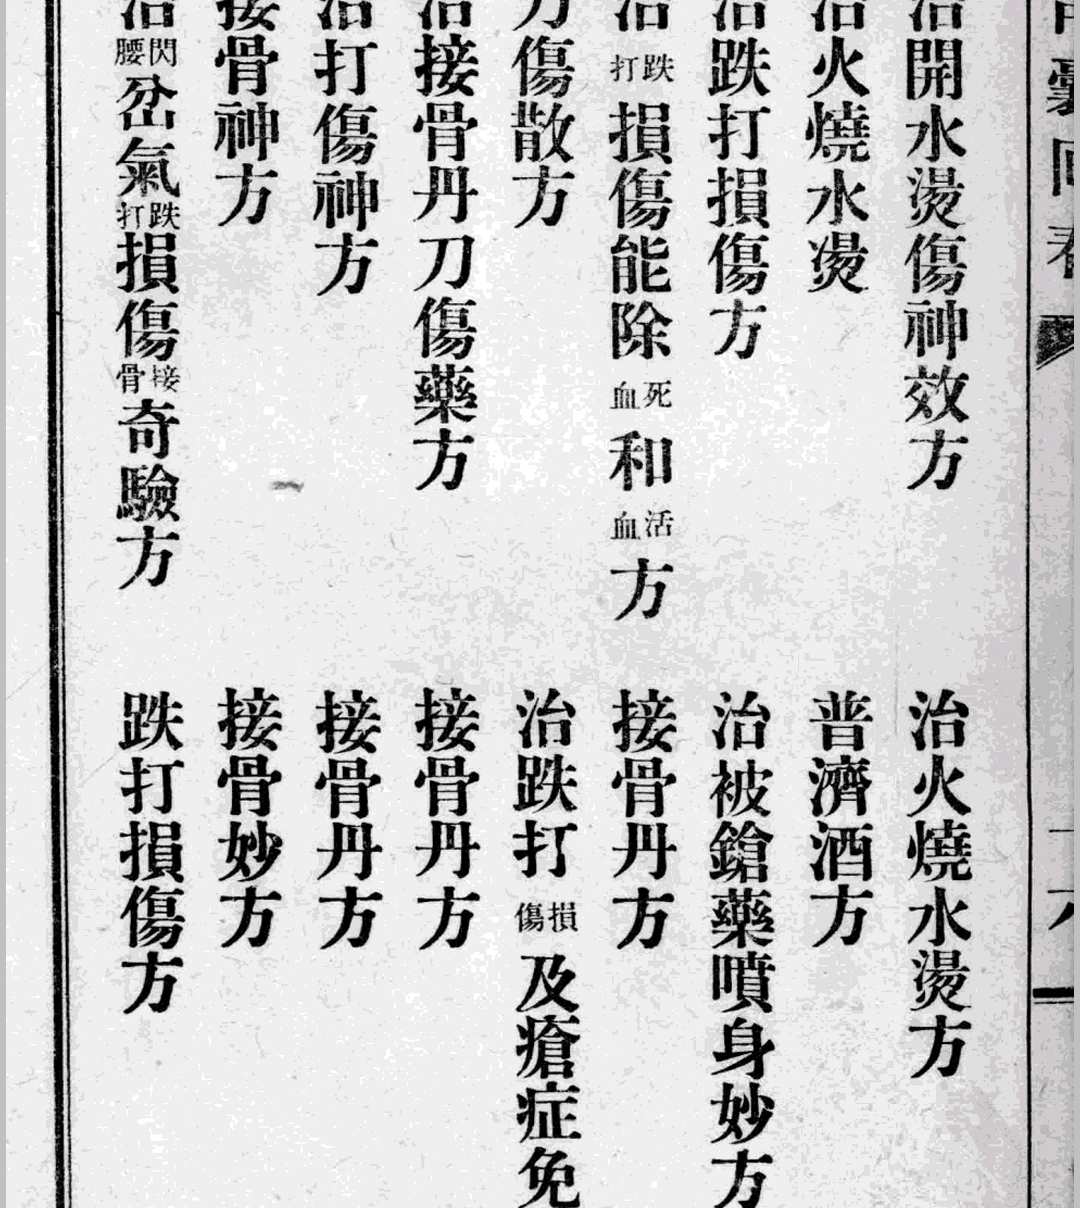 治開水燙傷神效方
治火燒水燙方
治火燒水燙
普濟酒方
治跌打損傷方
治被鎗藥噴身妙方
治跌打損傷能除死血和活血方
接骨丹方
刀傷散方
治跌打損傷及瘡症免
治接骨丹刀傷藥方
接骨丹方
治打傷神方
接骨丹方
接骨神方
接骨妙方
治閃腰岔氣跌打損傷接骨奇驗方
跌打損傷方